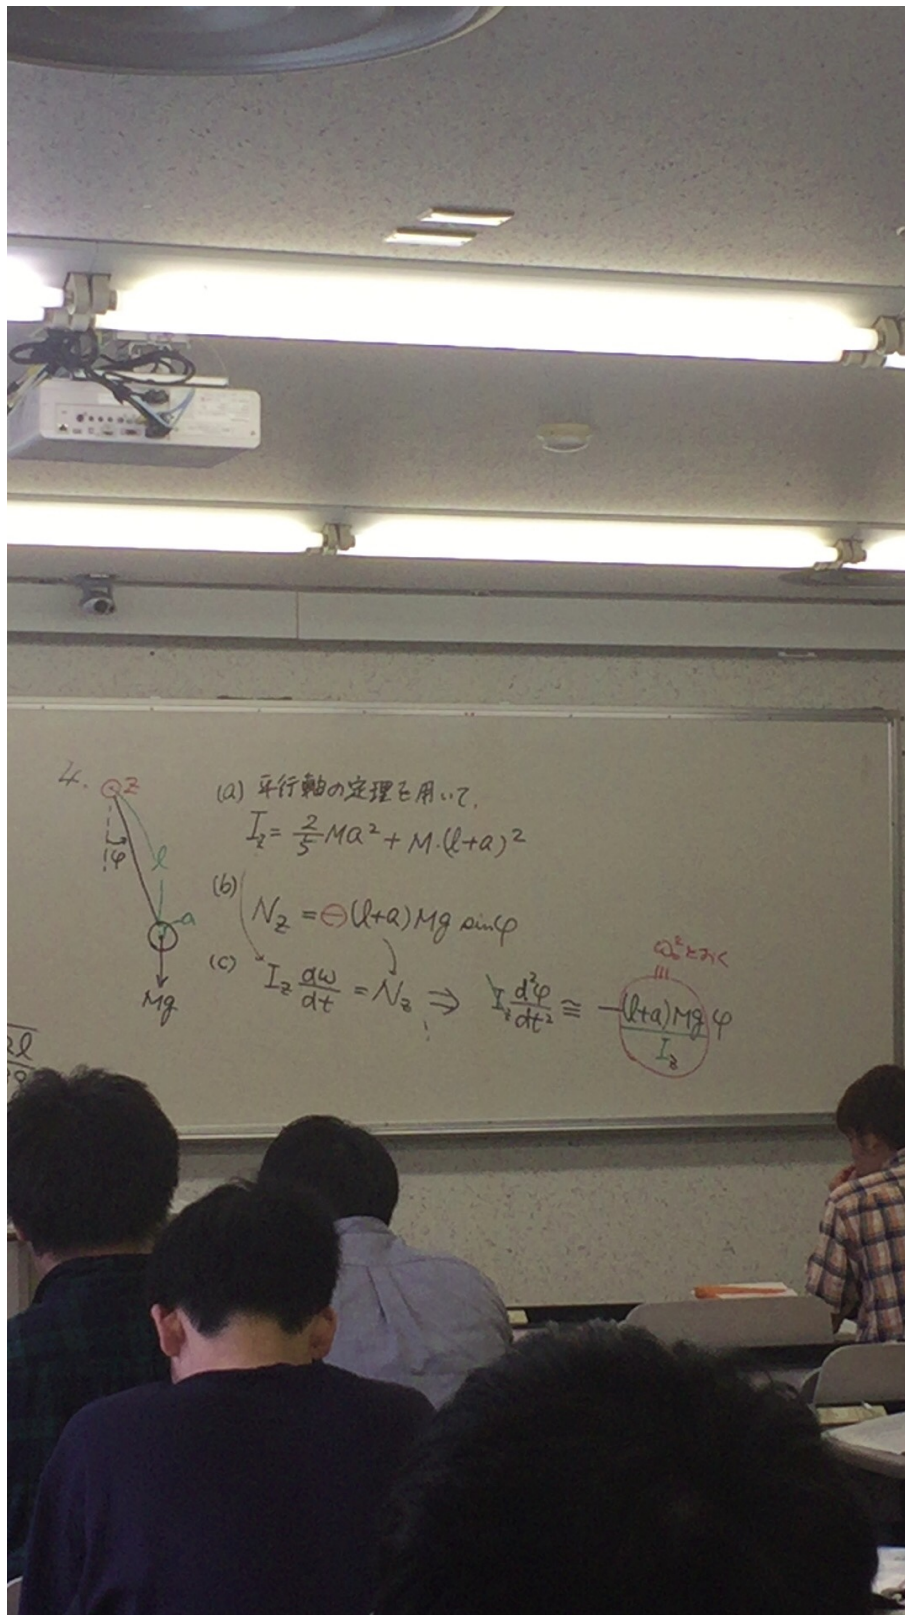 4.
z
φ
l
a
Mg
(a) 平行軸の定理を用いて、
I_z = 2/5 Ma² + M·(l+a)²
(b)
N_z = ⊖(l+a)Mg sinφ
(c) I_z dω/dt = N_z ⇒ I_z d²φ/dt² ≅ −(l+a)Mg/I_z φ
ω₀²とおく